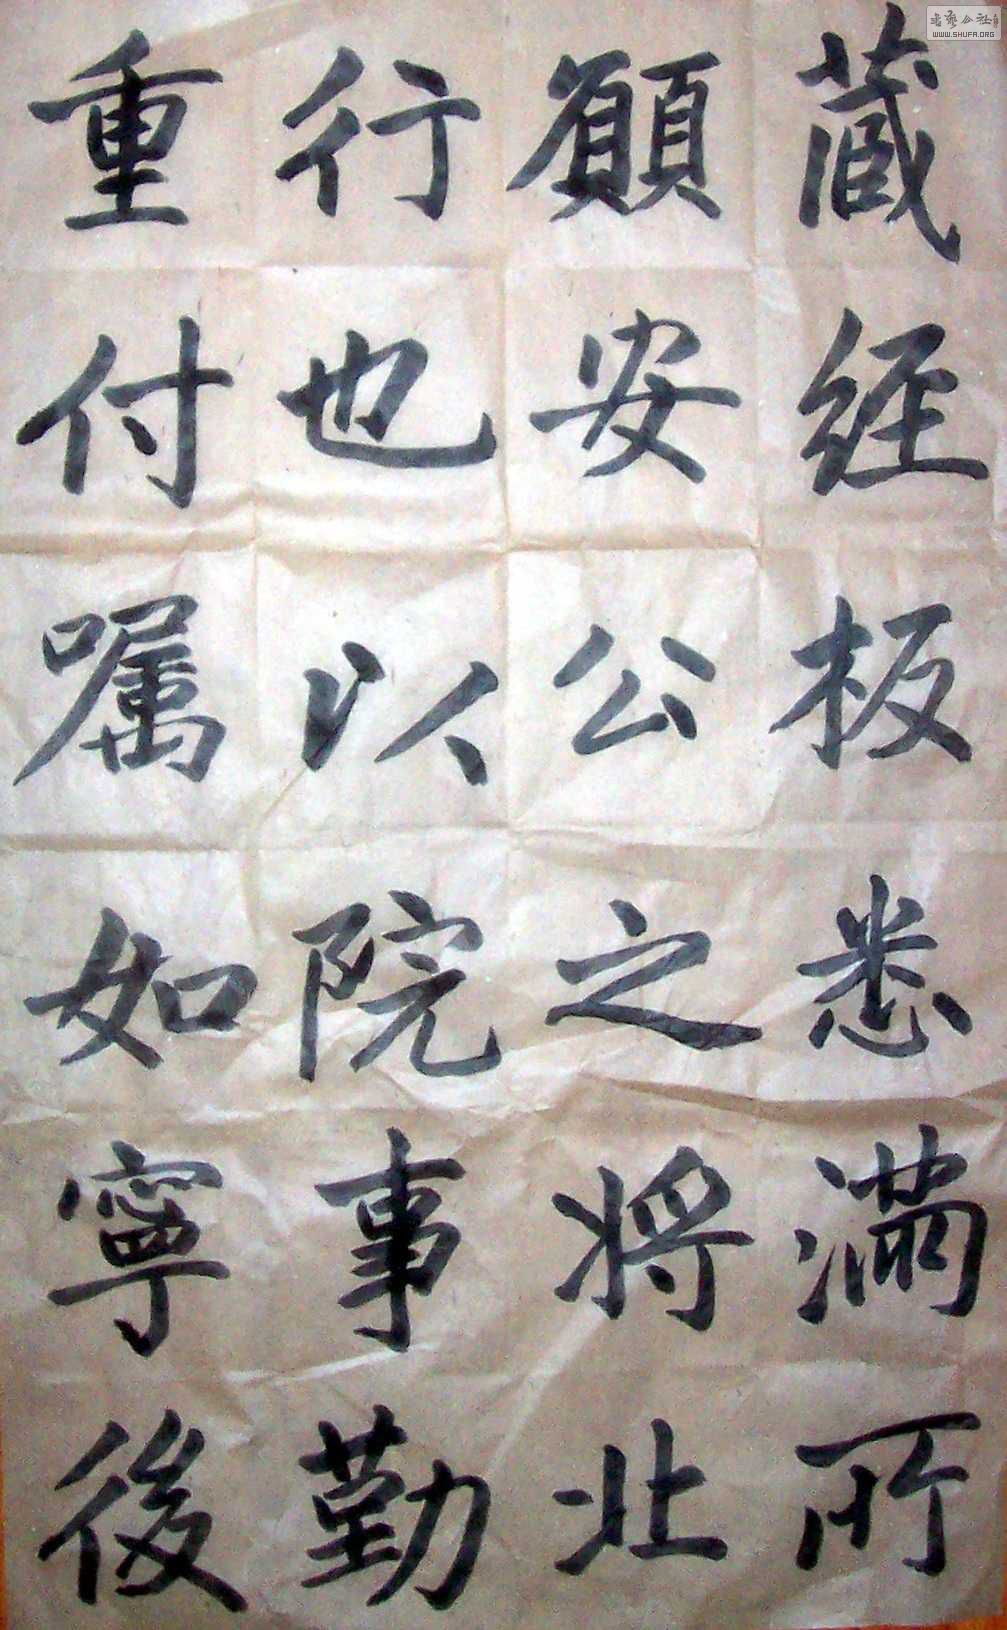 藏經板悉滿所
願安公之將北
行也以院事勤
重付囑如寧後
書藝公社
WWW.SHUFA.ORG